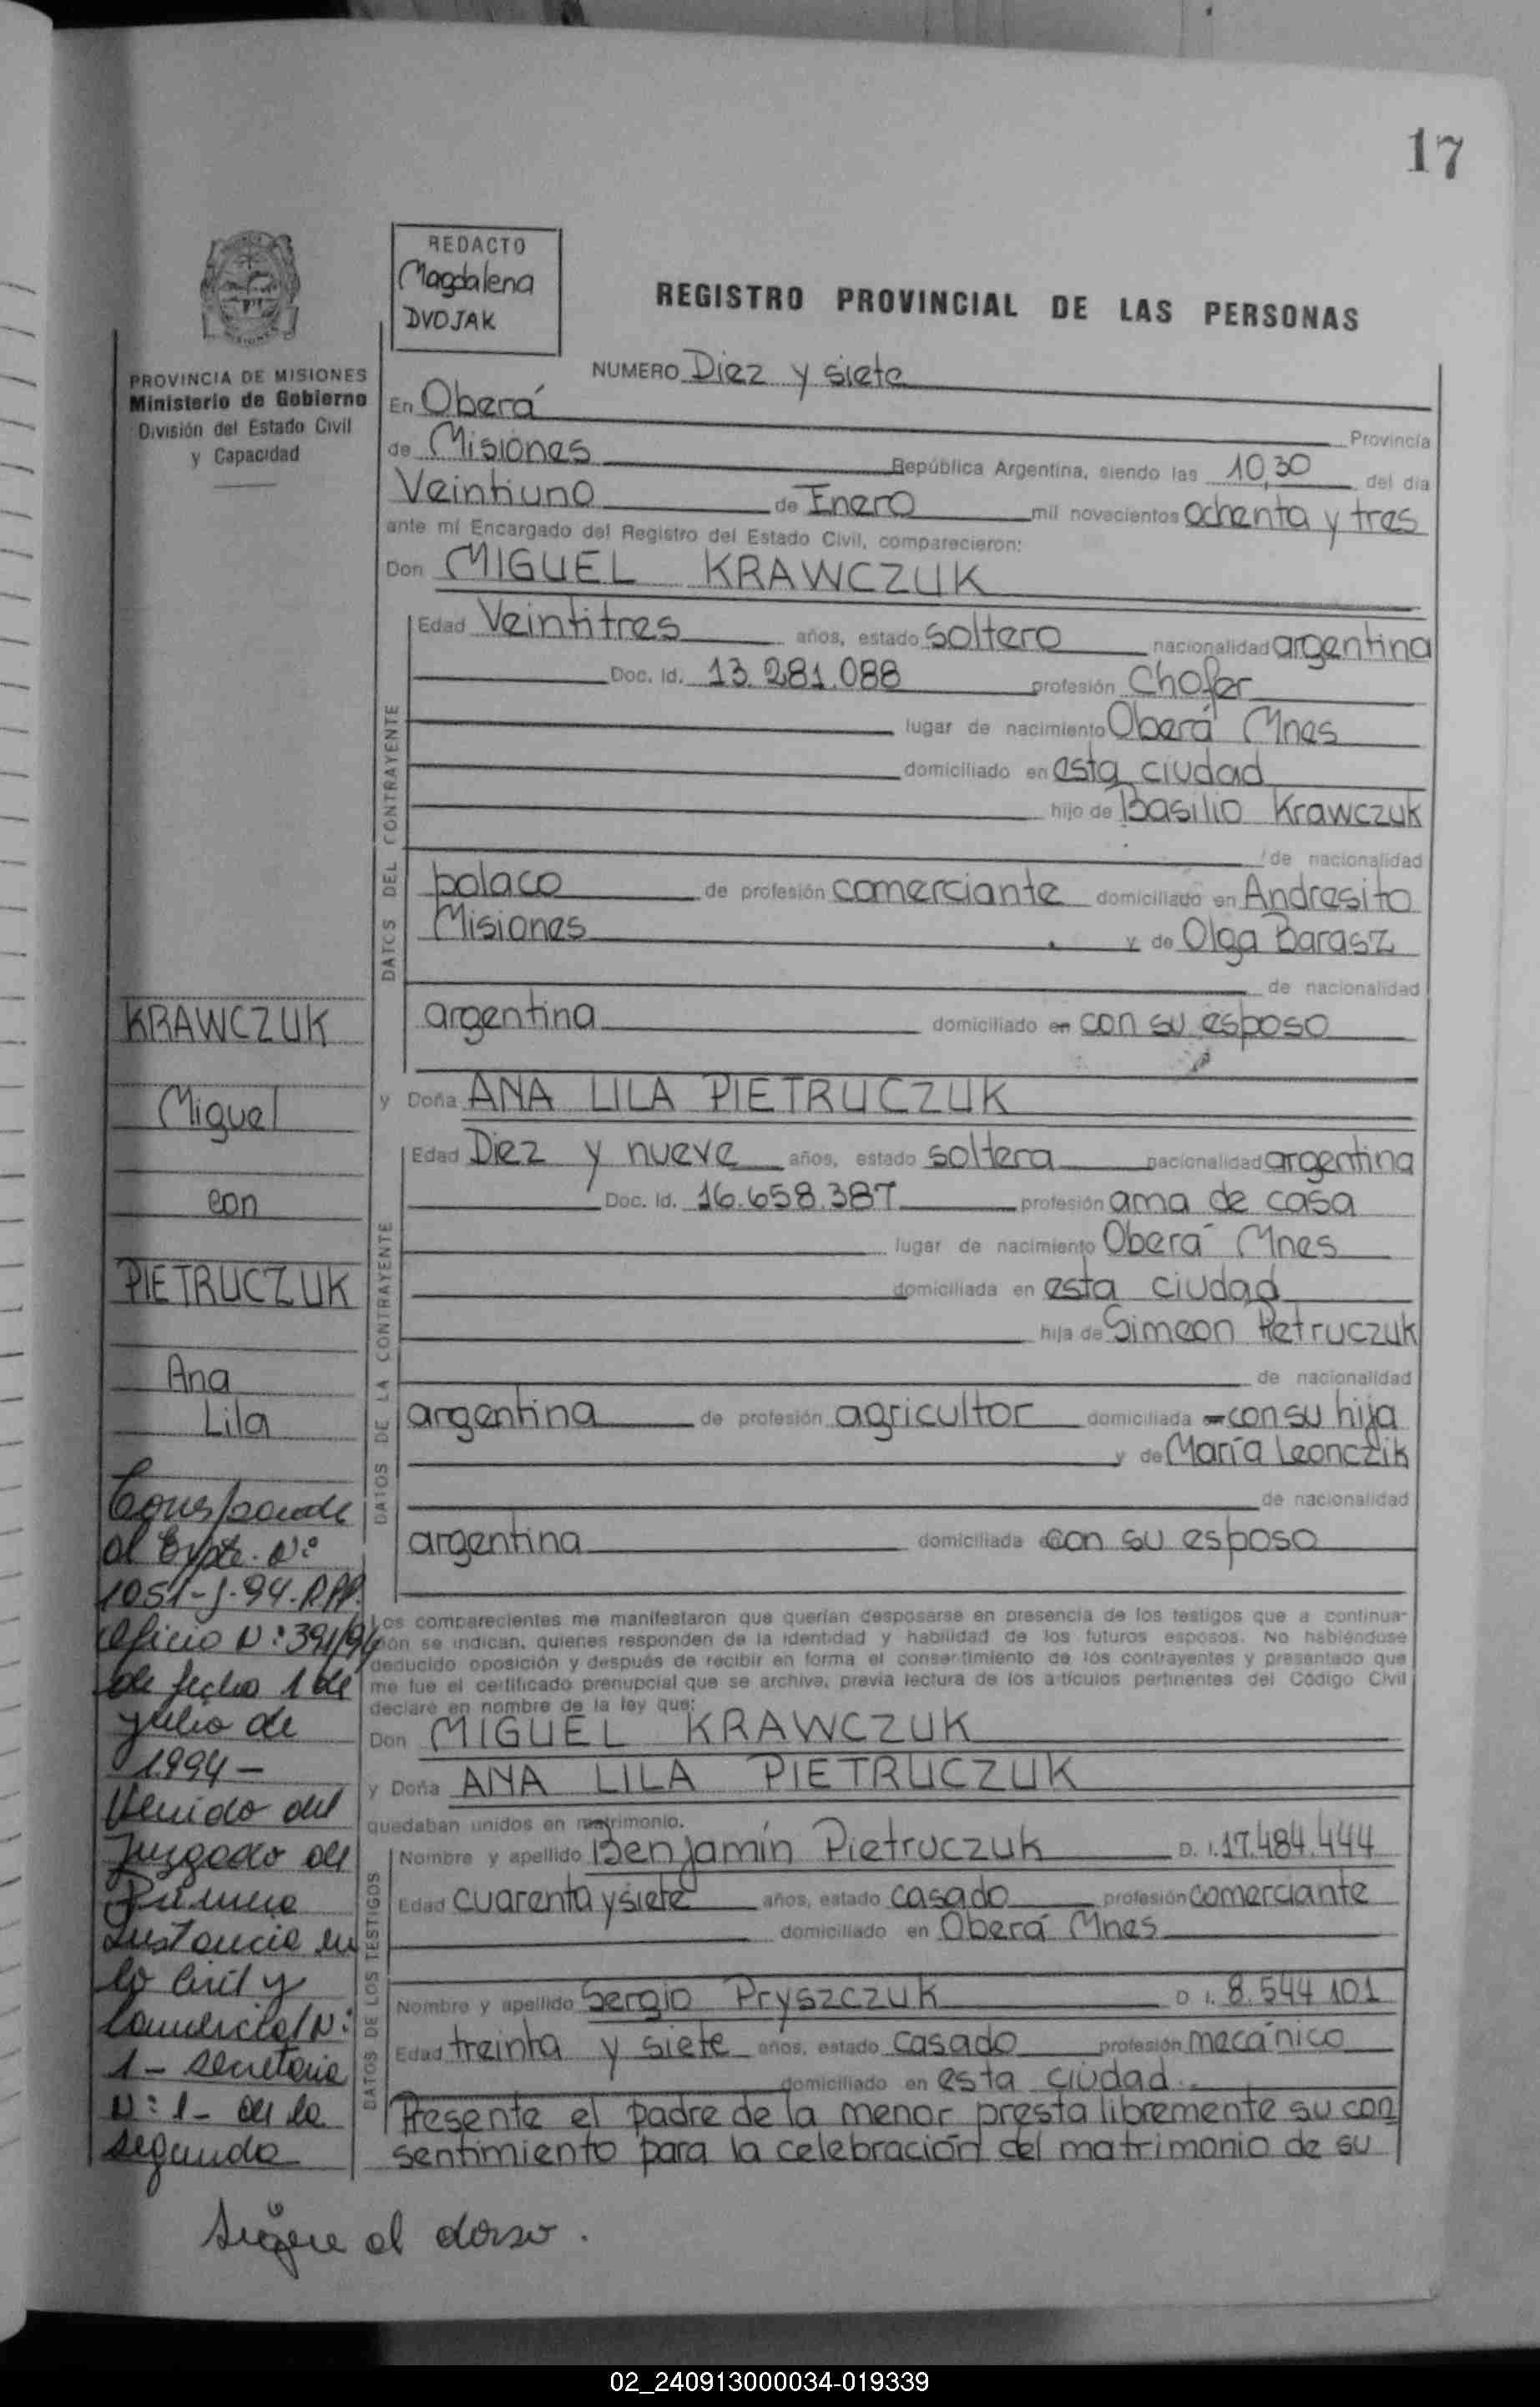 17
REDACTO
Magdalena
DVOJAK
REGISTRO PROVINCIAL DE LAS PERSONAS
PROVINCIA DE MISIONES
Ministerio de Gobierno
División del Estado Civil
y Capacidad
NUMERO Diez y siete
En Oberá Provincia
de Misiones República Argentina, siendo las 10,30 del día
Veintiuno de Enero mil novecientos ochenta y tres
ante mí Encargado del Registro del Estado Civil, comparecieron:
Don MIGUEL KRAWCZUK
DATOS DEL CONTRAYENTE
Edad Veintitres años, estado soltero nacionalidad argentina
Doc. Id. 13.281.088 profesión Chofer
lugar de nacimiento Oberá Mnes
domiciliado en esta ciudad
hijo de Basilio Krawczuk
de nacionalidad
polaco de profesión comerciante domiciliado en Andresito
Misiones y de Olga Barasz
de nacionalidad
argentina domiciliado en con su esposo
y Doña ANA LILA PIETRUCZUK
DATOS DE LA CONTRAYENTE
Edad Diez y nueve años, estado soltera nacionalidad argentina
Doc. Id. 16.658.387 profesión ama de casa
lugar de nacimiento Oberá Mnes
domiciliada en esta ciudad
hija de Simeon Pietruczuk
de nacionalidad
argentina de profesión agricultor domiciliada con su hija
y de María Leonczik
de nacionalidad
argentina domiciliada con su esposo
Los comparecientes me manifestaron que querían desposarse en presencia de los testigos que a continua-
ción se indican, quienes responden de la identidad y habilidad de los futuros esposos. No habiéndose
deducido oposición y después de recibir en forma el consentimiento de los contrayentes y presentado que
me fue el certificado prenupcial que se archiva, previa lectura de los artículos pertinentes del Código Civil
declaré en nombre de la ley que:
Don MIGUEL KRAWCZUK
y Doña ANA LILA PIETRUCZUK
quedaban unidos en matrimonio.
DATOS DE LOS TESTIGOS
Nombre y apellido Benjamín Pietruczuk D. I. 17.484.444
Edad cuarenta y siete años, estado casado profesión comerciante
domiciliado en Oberá Mnes
Nombre y apellido Sergio Pryszczuk D I. 8.544 101
Edad treinta y siete años, estado casado profesión mecánico
domiciliado en esta ciudad.
Presente el padre de la menor presta libremente su con
sentimiento para la celebración del matrimonio de su
KRAWCZUK
Miguel
con
PIETRUCZUK
Ana
Lila
Corresponde
al Expte. Nº
1051-J-94-RPP.
Oficio Nº 391/94
de fecha 1 de
julio de
1994 -
Venido del
Juzgado de
Primera
Instancia en
lo Civil y
Comercial Nº
1 - Secretaria
Nº 1 - de la
segunda
Sigue al dorso.
02_240913000034-019339